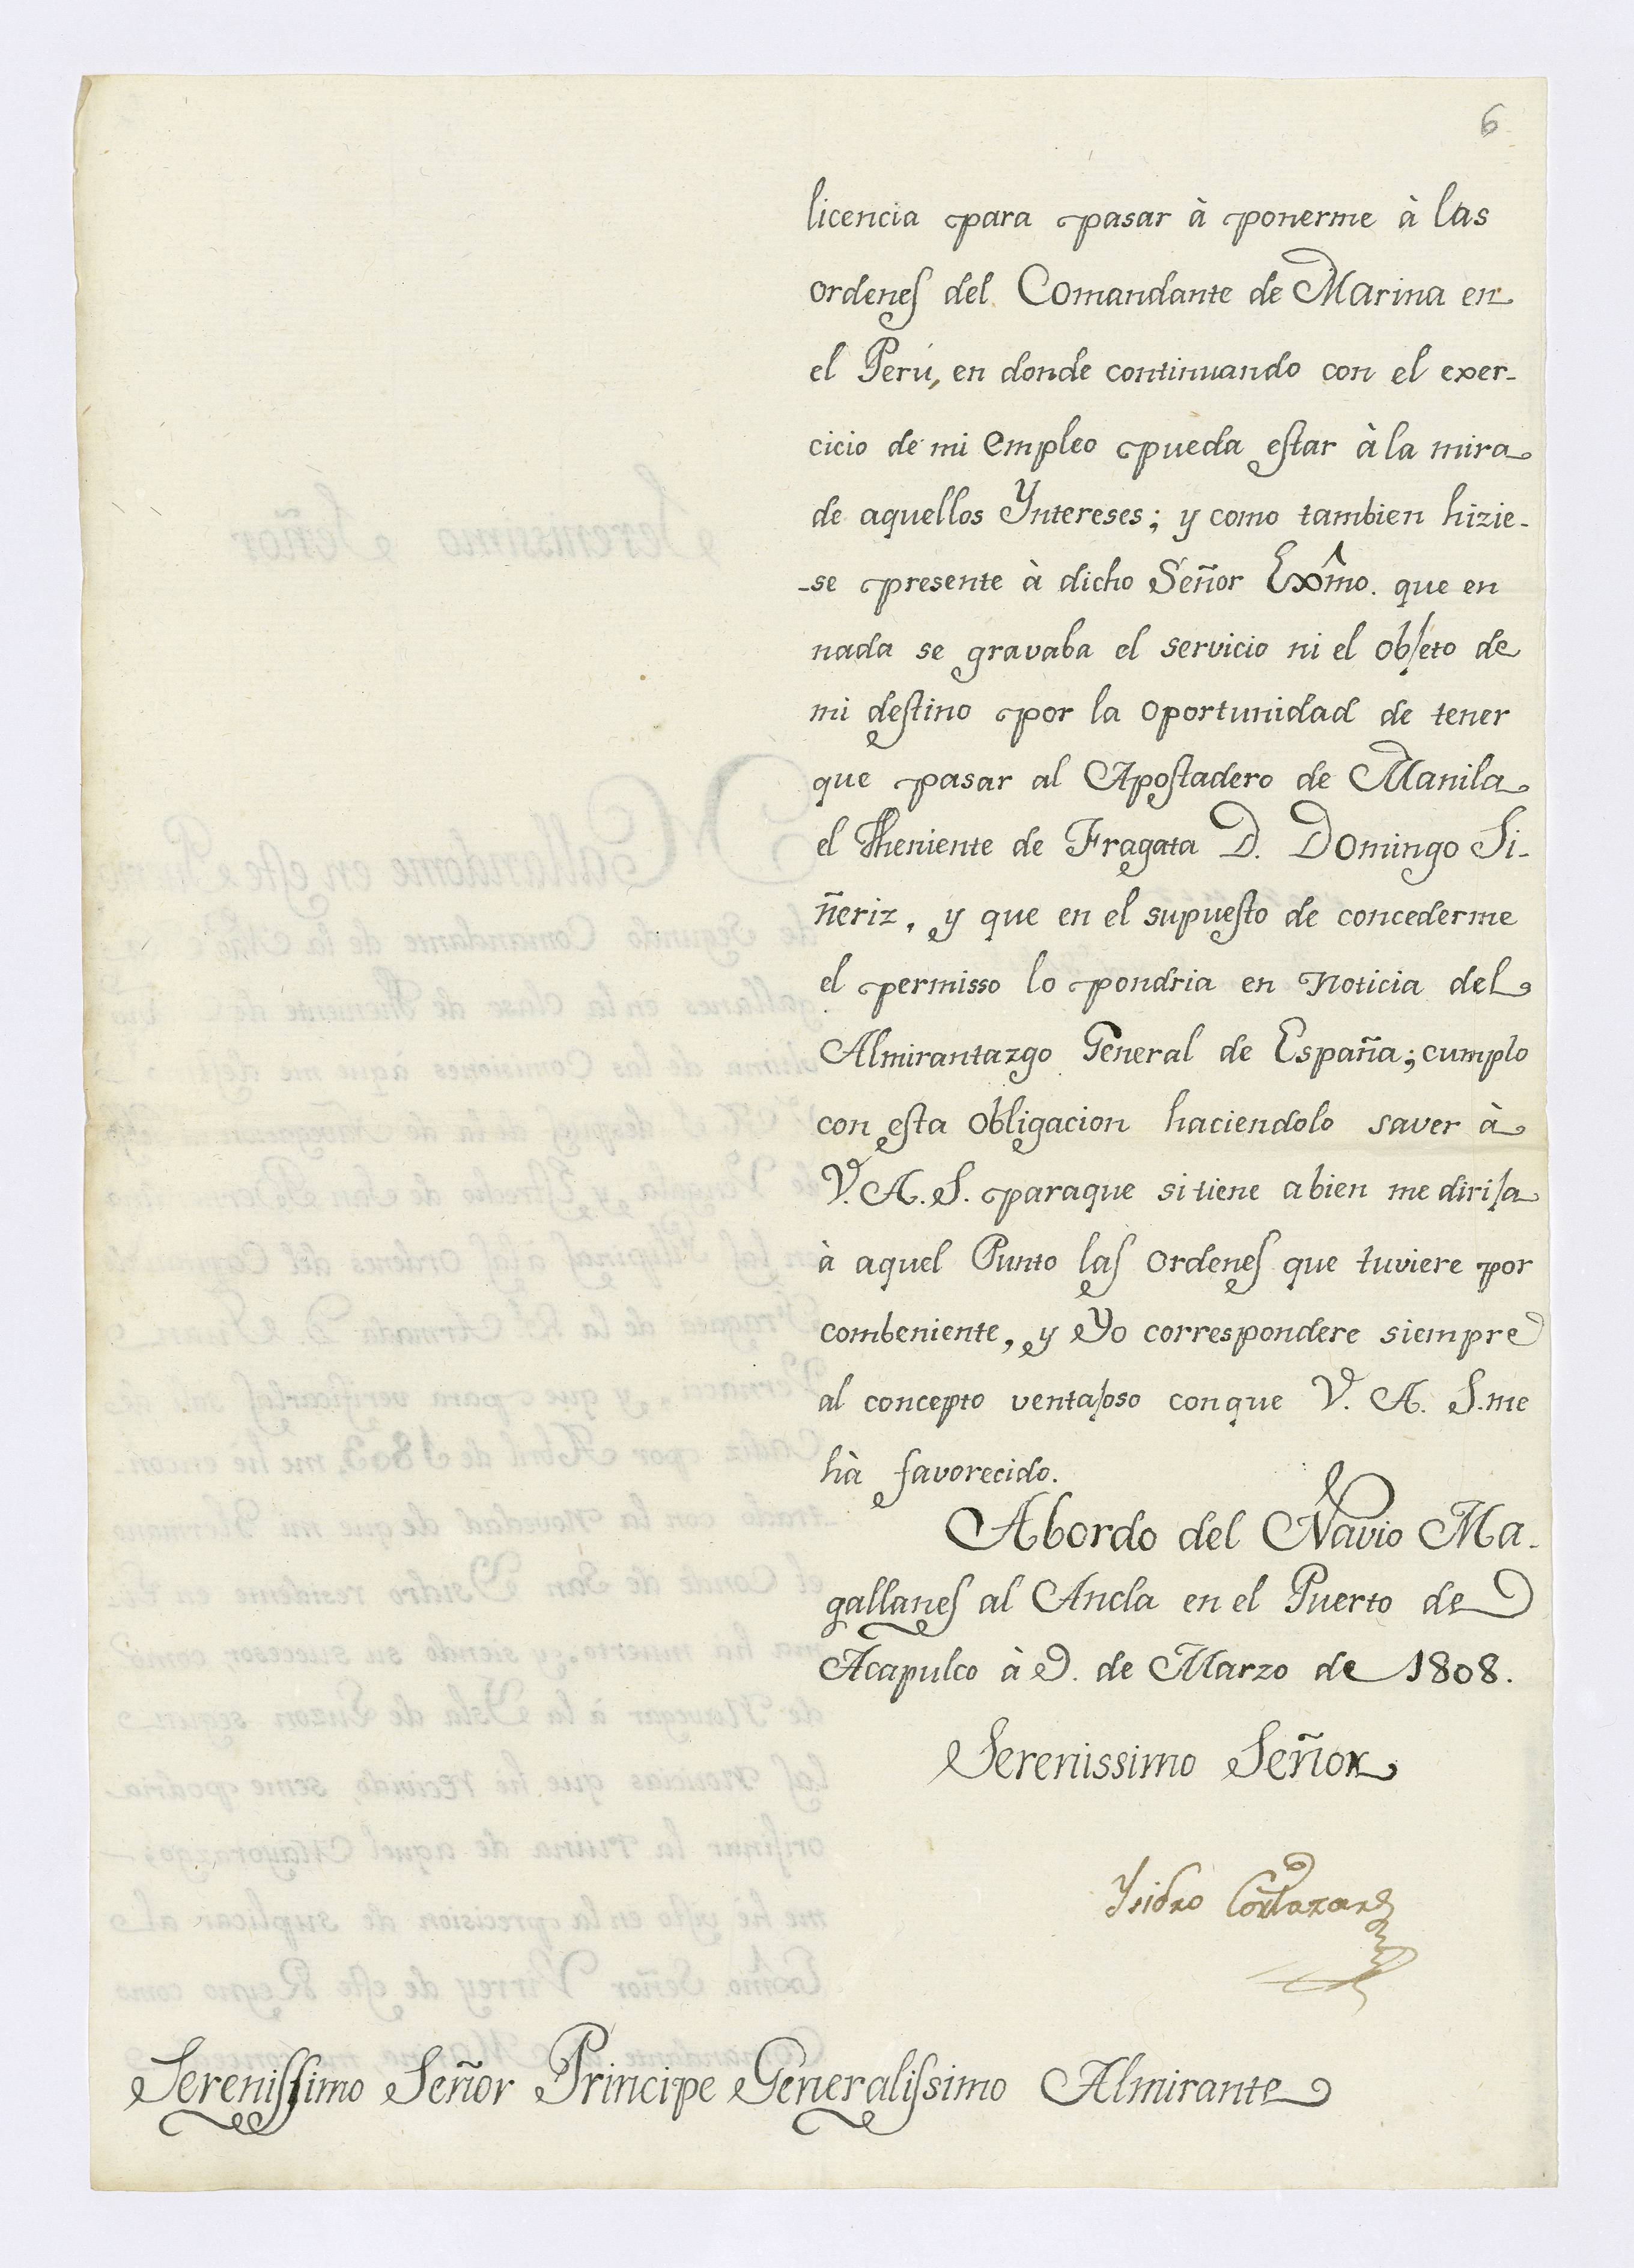 6
licencia para pasar à ponerme à las
ordenes del Comandante de Marina en
el Perú, en donde continuando con el exer-
cicio de mi empleo pueda estar à la mira
de aquellos Yntereses; y como tambien hizie-
-se presente à dicho Señor Exmô. que en
nada se gravaba el servicio ni el objeto de
mi destino por la oportunidad de tener
que pasar al Apostadero de Manila
el Theniente de Fragata D. Domingo Si-
ñeriz, y que en el supuesto de concederme
el permisso lo pondria en noticia del
Almirantazgo General de España; cumplo
con esta obligacion haciendolo saver à
V. A. S. paraque si tiene a bien me dirija
à aquel Punto las ordenes que tuviere por
combeniente, y Yo correspondere siempre
al concepto ventajoso conque V. A. S. me
hà favorecido.
Abordo del Navio Ma-
gallanes al Ancla en el Puerto de
Acapulco à de Marzo de 1808.
Serenissimo Señor
Ysidro Cortazar
Serenissimo Señor Principe Generalissimo Almirante